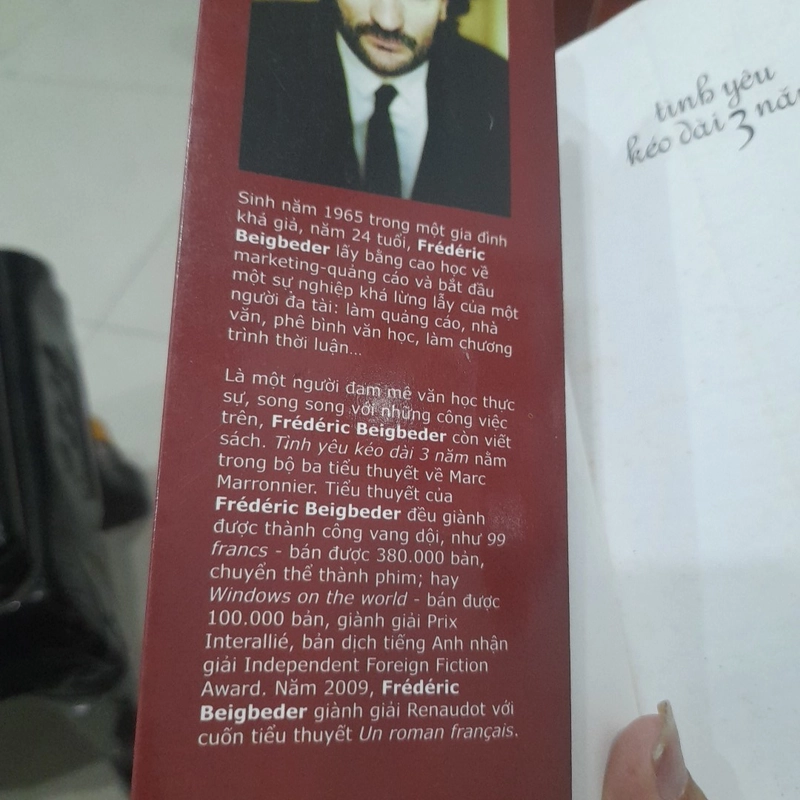 Sinh năm 1965 trong một gia đình
khá giả, năm 24 tuổi, Frédéric
Beigbeder lấy bằng cao học về
marketing-quảng cáo và bắt đầu
một sự nghiệp khá lừng lẫy của một
người đa tài: làm quảng cáo, nhà
văn, phê bình văn học, làm chương
trình thời luận...
Là một người đam mê văn học thực
sự, song song với những công việc
trên, Frédéric Beigbeder còn viết
sách. Tình yêu kéo dài 3 năm nằm
trong bộ ba tiểu thuyết về Marc
Marronnier. Tiểu thuyết của
Frédéric Beigbeder đều giành
được thành công vang dội, như 99
francs - bán được 380.000 bản,
chuyển thể thành phim; hay
Windows on the world - bán được
100.000 bản, giành giải Prix
Interallié, bản dịch tiếng Anh nhận
giải Independent Foreign Fiction
Award. Năm 2009, Frédéric
Beigbeder giành giải Renaudot với
cuốn tiểu thuyết Un roman français.
tình yêu
kéo dài 3